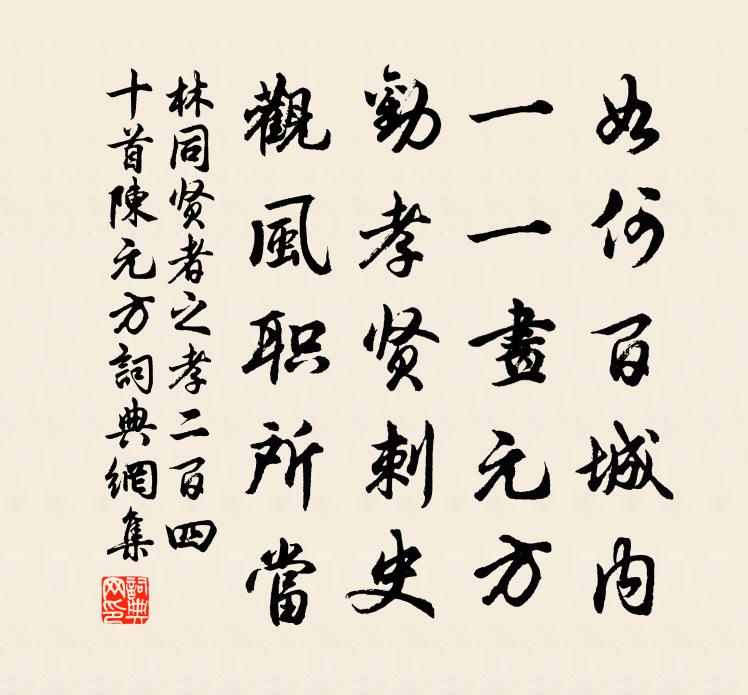 如何百城内
一一畫元方
勸孝贤刺史
觀風职所當
林同贤者之孝二百四
十首陳元方詞典網集
詞典
网印